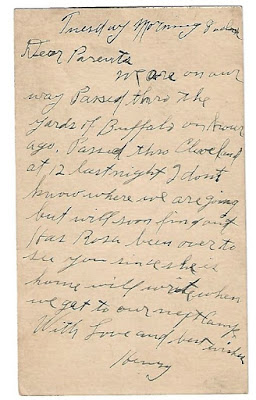 Tuesday Morning 9 oclock
Dear Parents
we are on our
way Passed thro the
yards of Buffalo on hour
ago. Passed thro Cleveland
at 12 last night I dont
know where we are going
but will soon find out
Has Rosa been over to
see you since she is
home will write when
we get to our next Camp
With Love and best wishes
Henry